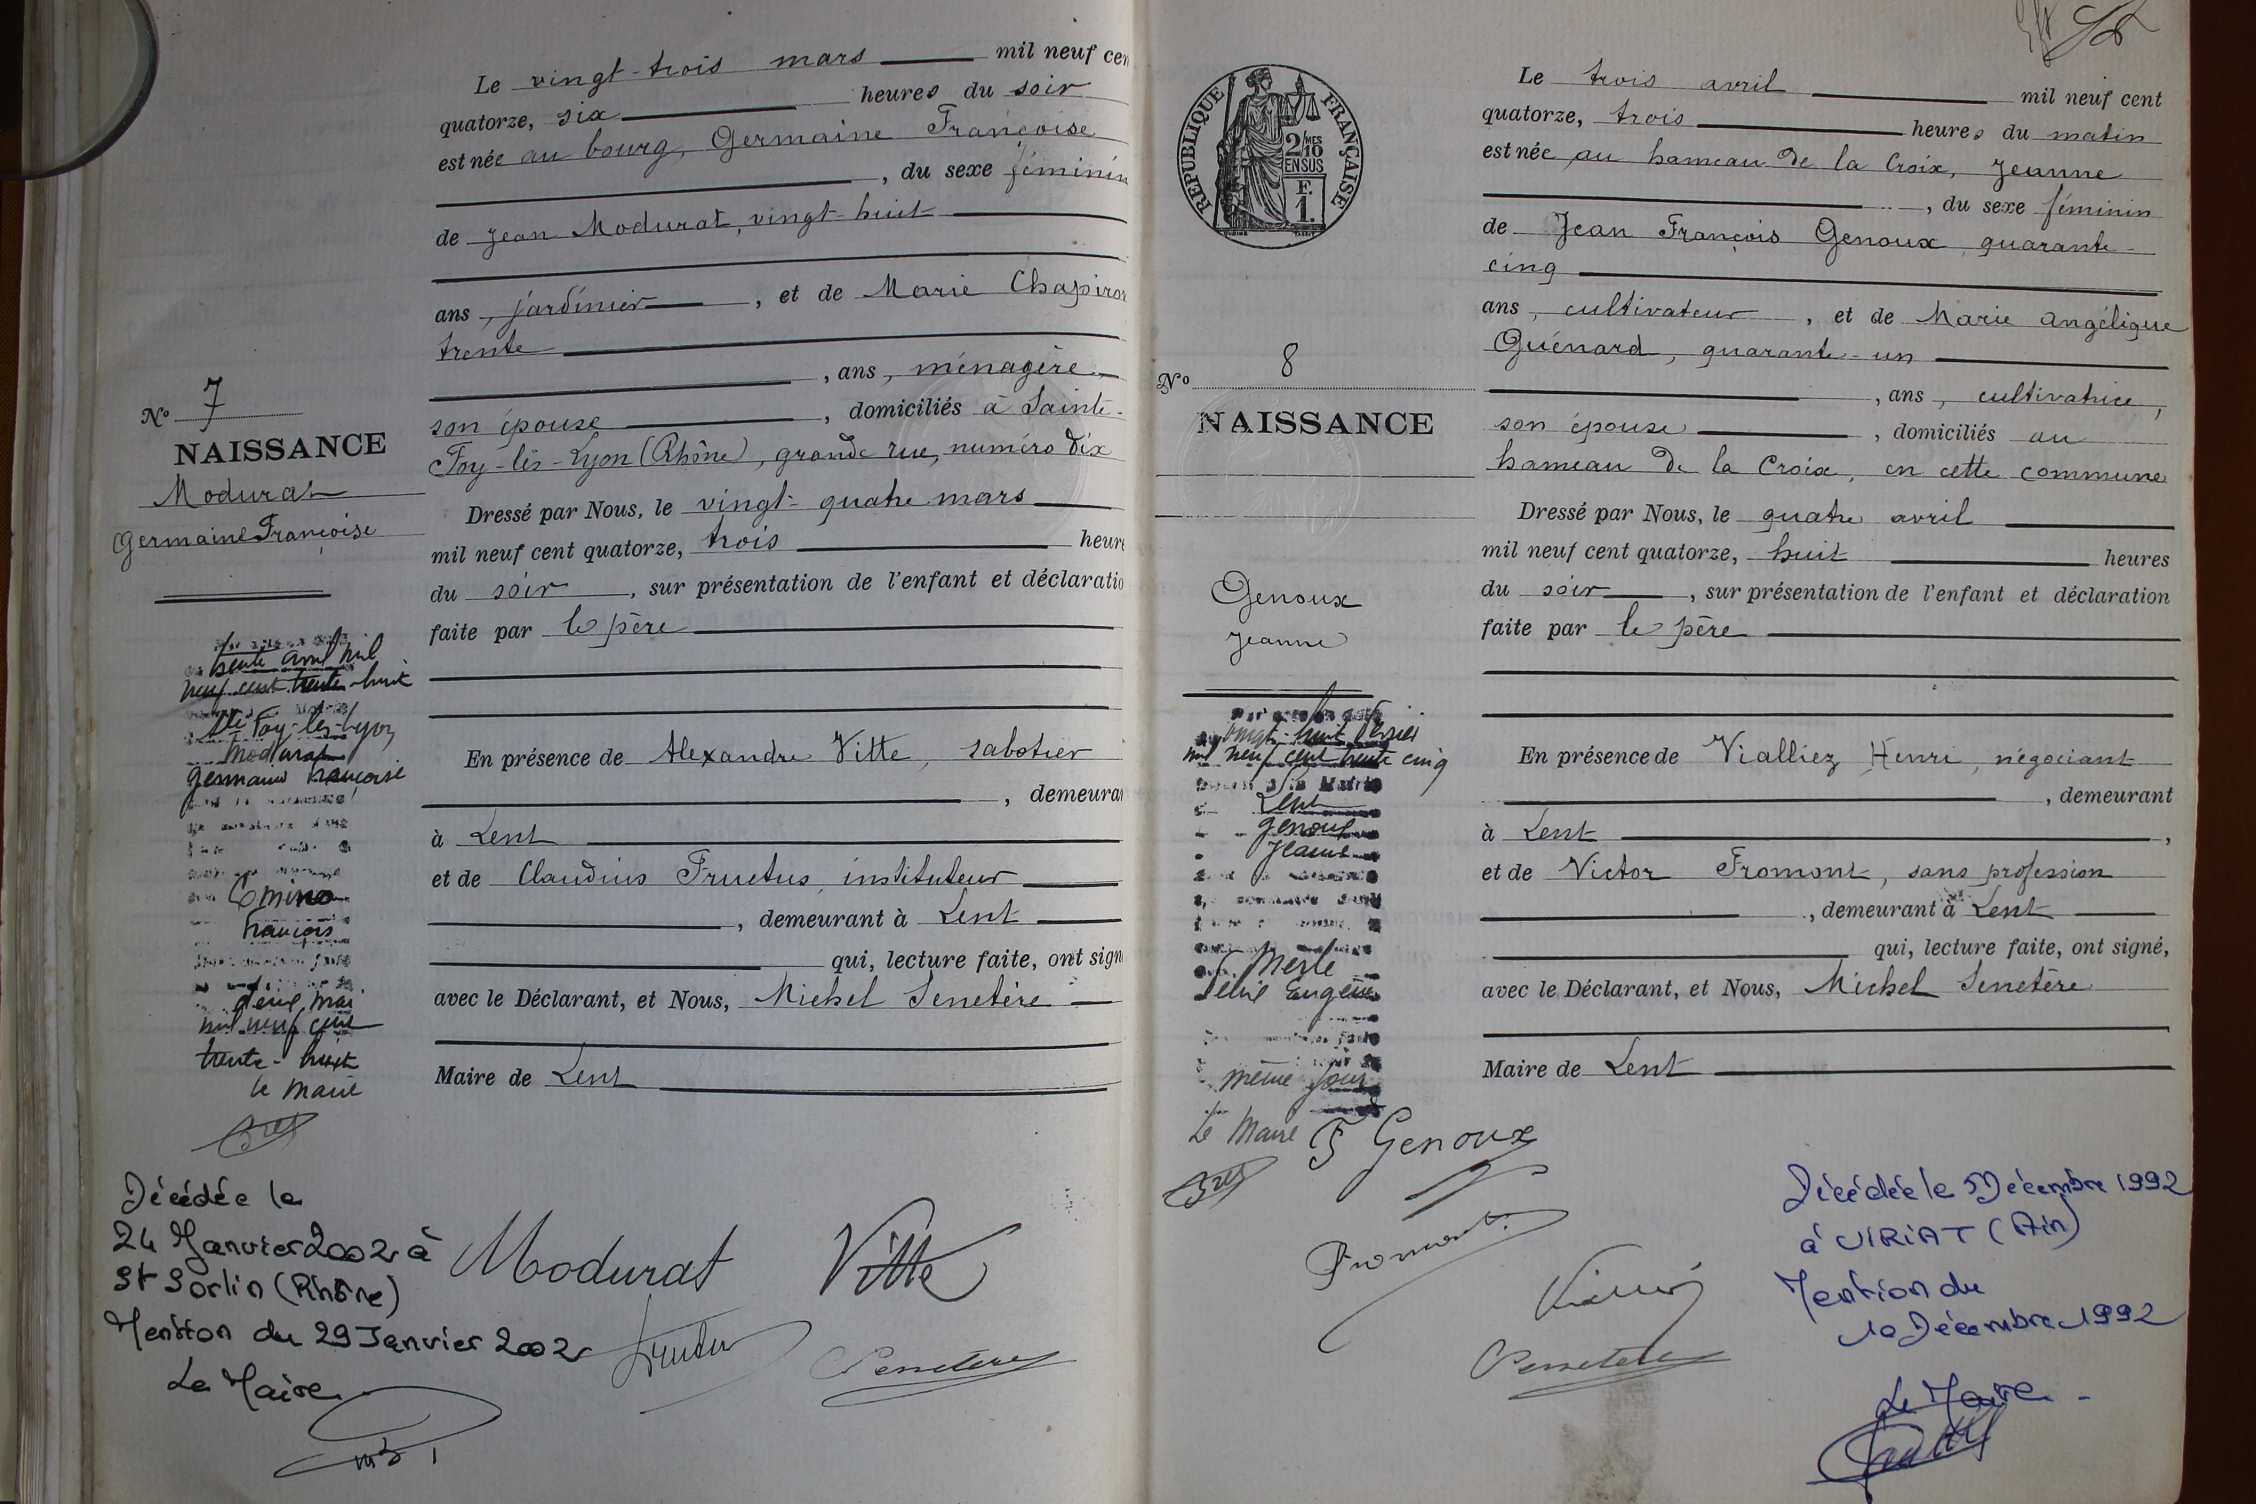 Le vingt-trois mars mil neuf cen
quatorze, six heures du soir
est née au bourg, Germaine Françoise
, du sexe féminin
de Jean Modurat, vingt-huit
ans, jardinier, et de Marie Chapiron
trente
, ans, ménagère
son épouse, domiciliés à Sainte-
Foy-lès-Lyon (Rhône), grande rue, numéro dix
Dressé par Nous, le vingt-quatre mars
mil neuf cent quatorze, trois heure
du soir, sur présentation de l'enfant et déclaratio
faite par le père
En présence de Alexandre Vitte, sabotier
, demeuran
à Lent
et de Claudius Fructus, instituteur
, demeurant à Lent
qui, lecture faite, ont sign
avec le Déclarant, et Nous, Michel Senetère
Maire de Lent
Modurat Vitte
Fructus Senetère
No 7
NAISSANCE
Modurat
Germaine Françoise
trente avril mil
neuf cent trente-huit
Ste Foy-les-Lyon
Modurat
Germaine Françoise
François
deux mai
mil neuf cent
trente-huit
le Maire
Décédée le
24 Janvier 2002 à
St Sorlin (Rhône)
Mention du 29 Janvier 2002
Le Maire
RÉPUBLIQUE FRANÇAISE
2/10
MES
EN SUS
F.
1.
No 8
NAISSANCE
Genoux
Jeanne
vingt-huit février
mil neuf cent trente cinq
Lent
Genoux
Jeanne
Merle
Eugène
même jour
Le Maire
Le trois avril mil neuf cent
quatorze, trois heures du matin
est née au hameau de la Croix, Jeanne
, du sexe féminin
de Jean François Genoux, quarante-
cinq
ans, cultivateur, et de Marie Angélique
Guénard, quarante-un
, ans, cultivatrice,
son épouse, domiciliés au
hameau de la Croix, en cette commune
Dressé par Nous, le quatre avril
mil neuf cent quatorze, huit heures
du soir, sur présentation de l'enfant et déclaration
faite par le père
En présence de Vialliez Henri, négociant
, demeurant
à Lent,
et de Victor Fromont, sans profession
, demeurant à Lent
qui, lecture faite, ont signé,
avec le Déclarant, et Nous, Michel Senetère
Maire de Lent
F Genoux
Fromont
Senetère
Décédée le 5 Décembre 1992
à VIRIAT (Ain)
Mention du
10 Décembre 1992
Le Maire